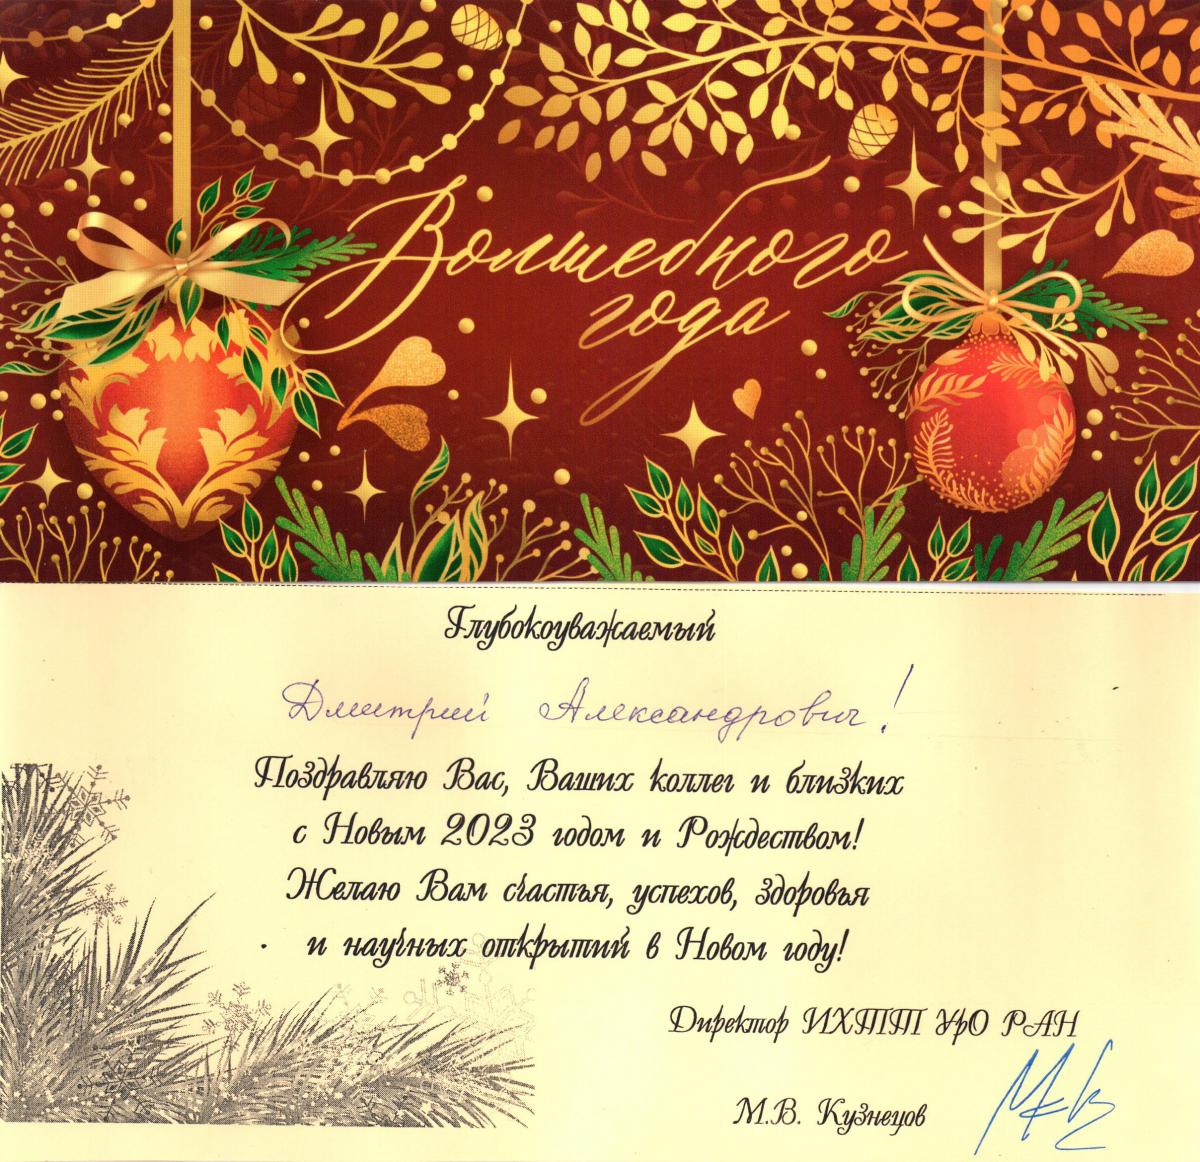 Волшебного
года
Глубокоуважаемый
Дмитрий Александрович!
Поздравляю Вас, Ваших коллег и близких
с Новым 2023 годом и Рождеством!
Желаю Вам счастья, успехов, здоровья
и научных открытий в Новом году!
Директор ИХТТ УрО РАН
М.В. Кузнецов